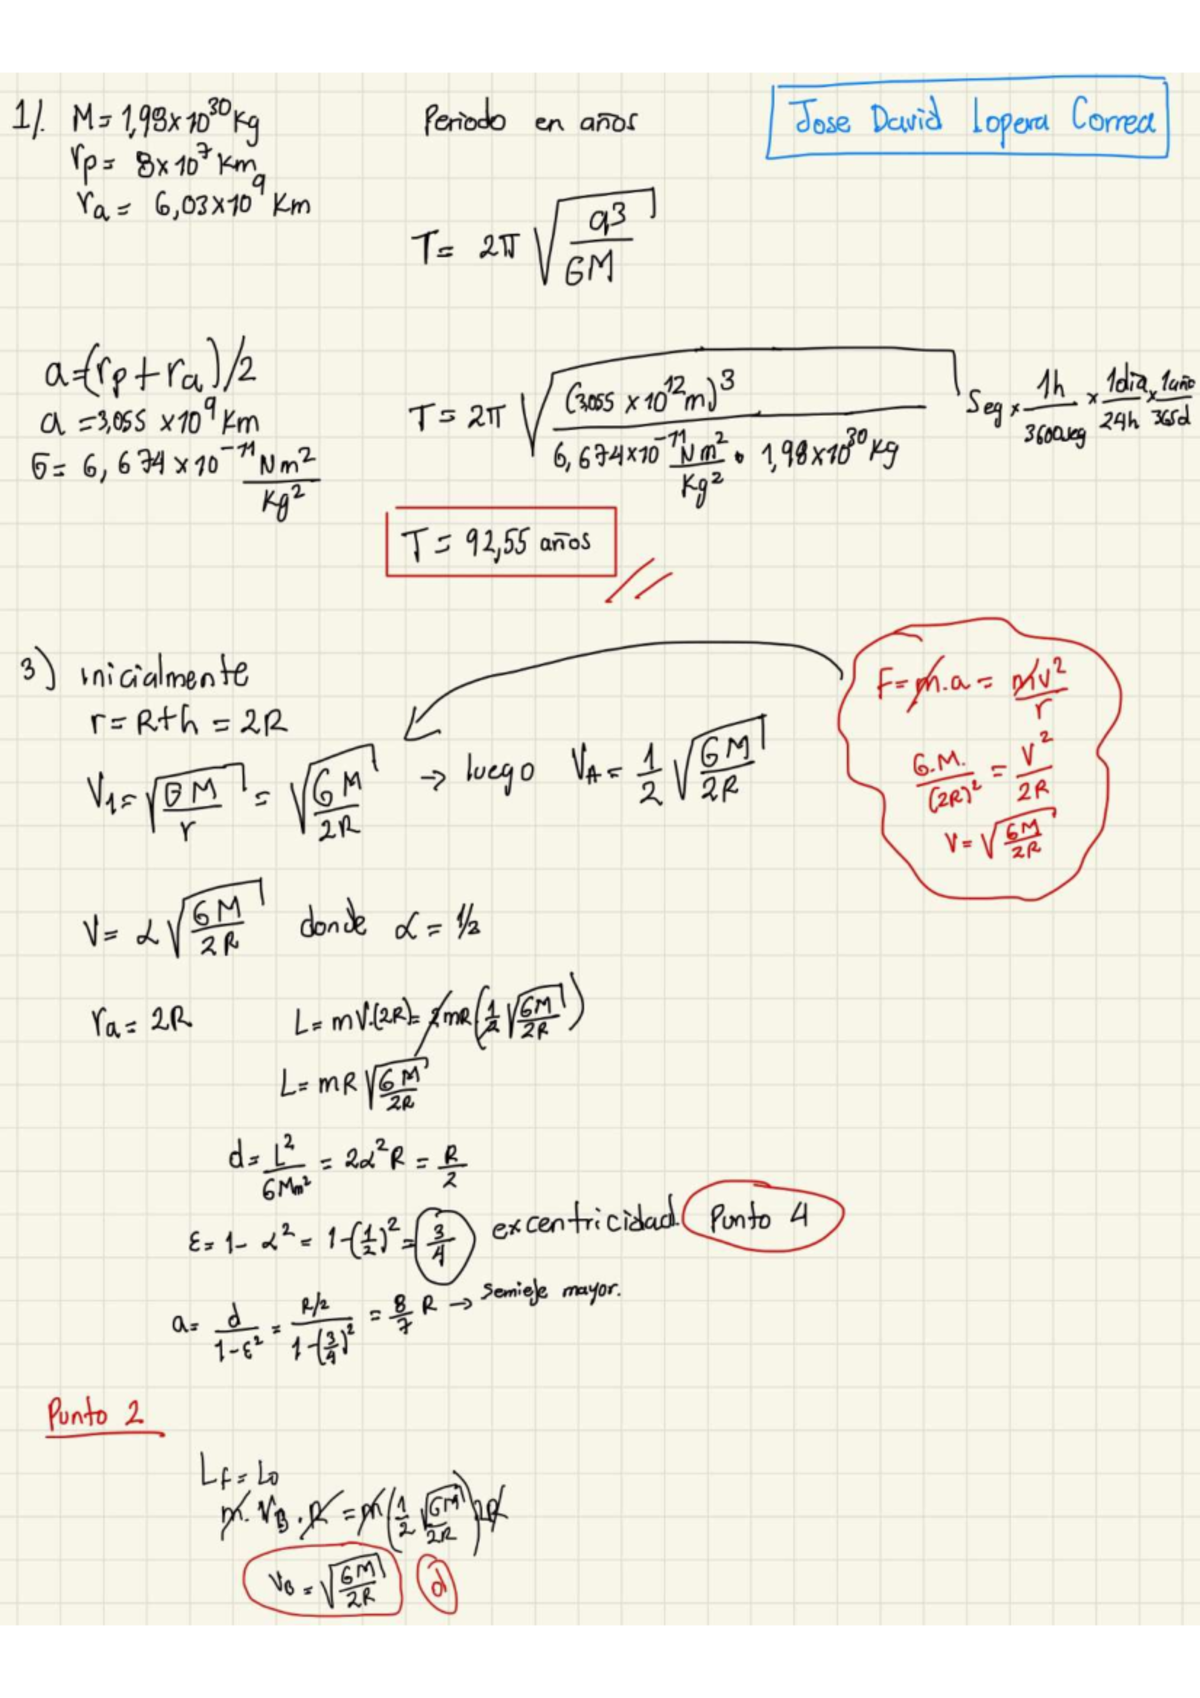 1/. M = 1,98 x 10^30 Kg
Periodo en años
Jose David Lopera Correa
rp = 8 x 10^7 Km
ra = 6,03 x 10^9 Km
T = 2π √(a3/GM)
a = (rp + ra)/2
a = 3,055 x 10^9 Km
G = 6,674 x 10^-11 Nm^2/Kg^2
T = 2π √((3,055 x 10^12 m)^3 / (6,674 x 10^-11 Nm^2/Kg^2 • 1,98 x 10^30 Kg)) Seg x 1h/3600seg x 1dia/24h x 1año/365d
T = 92,55 años
3) inicialmente
r = R+h = 2R
V1 = √(GM/r) = √(GM/2R) → luego VA = 1/2 √(GM/2R)
F = m.a = mv^2/r
G.M./(2R)^2 = V^2/2R
V = √(GM/2R)
V = α √(GM/2R) donde α = 1/2
ra = 2R
L = mV.(2R) = 2mR (1/2 √(GM/2R))
L = mR √(GM/2R)
d = L^2/GMm^2 = 2α^2 R = R/2
ε = 1 - α^2 = 1 - (1/2)^2 = 3/4 excentricidad. Punto 4
a = d/1-ε^2 = R/2/1-(3/4)^2 = 8/7 R → Semieje mayor.
Punto 2
Lf = Lo
m. VB . R = m (1/2 √(GM/2R)) 2R
VB = √(GM/2R) d